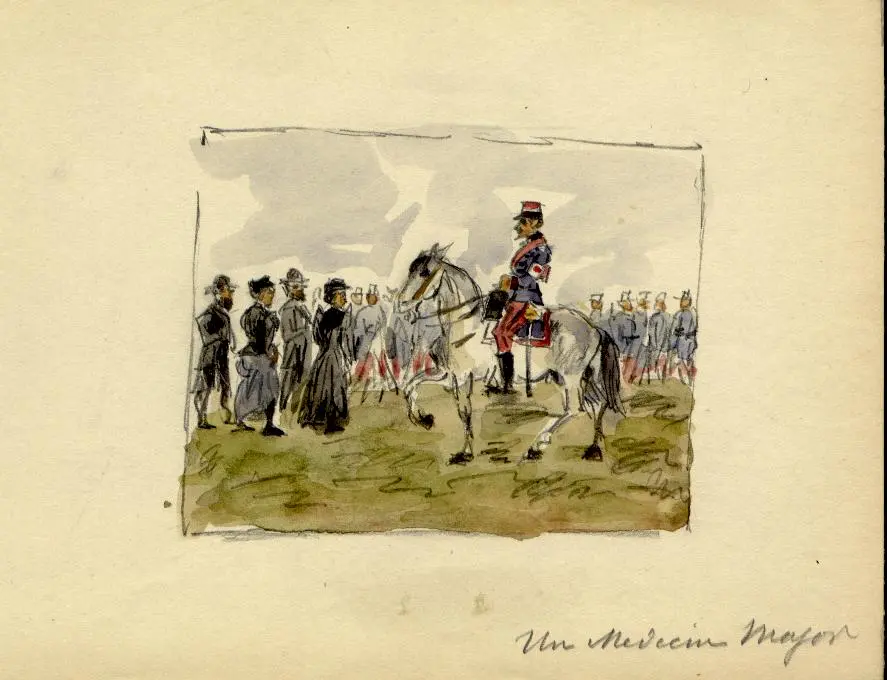 Un Medecin Major